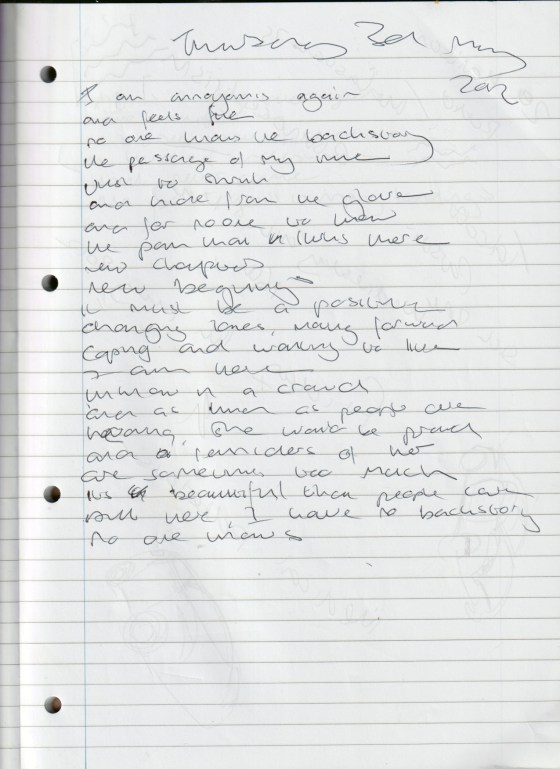 Thursday 3rd May
2012
I am annoyamis again
and feels fine
no one knows the backstory
the passage of my
just to drink
and hide from the glare
and for no one to know
the pain that is there
new chapters
new beginnings
it must be a positive
changing zones, moving forward
Coping and wanting to live
I am here
unknown in a crowd
and as much as people are
she would be proud
and reminders of her
are sometimes too much
its beautiful that people care
but here, I have no backstory
no one knows